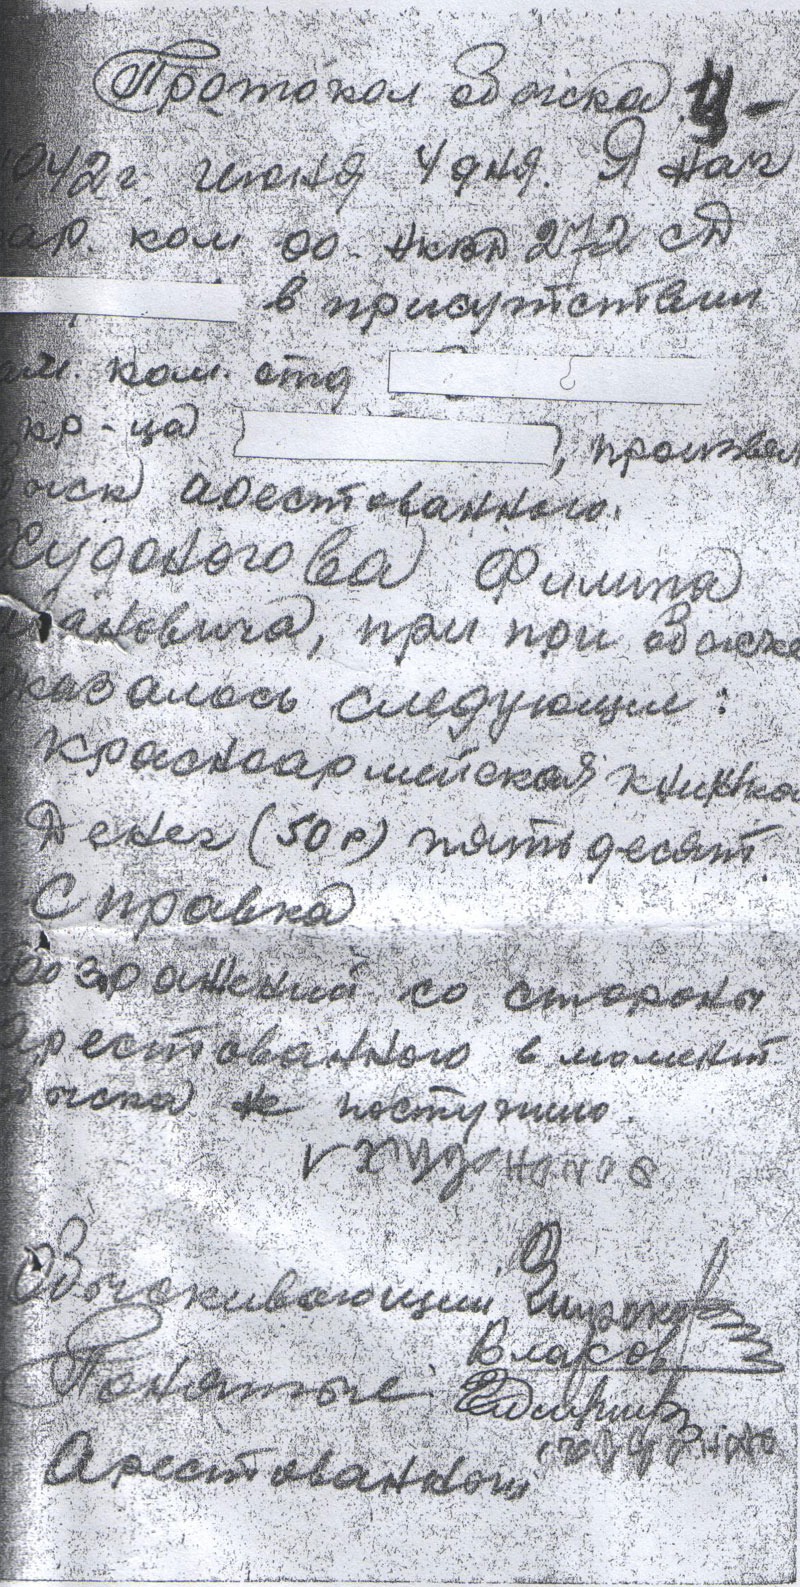 Протокол обыска
1942 г. июня 4 дня. Я нач
кар. ком оо. нквд 272 сд
в присутствии
ком. отд
кр-ца , произвел
обыск арестованного.
Худоногова Филипа
Ивановича, при при обыске
оказалось следующие:
Красноармейская книжка
Денег (50 р) пятьдесят.
Справка
Возражений со стороны
арестованного в момент
обыска не поступило.
Обыскивающий
Понятые Власов
Арестованный